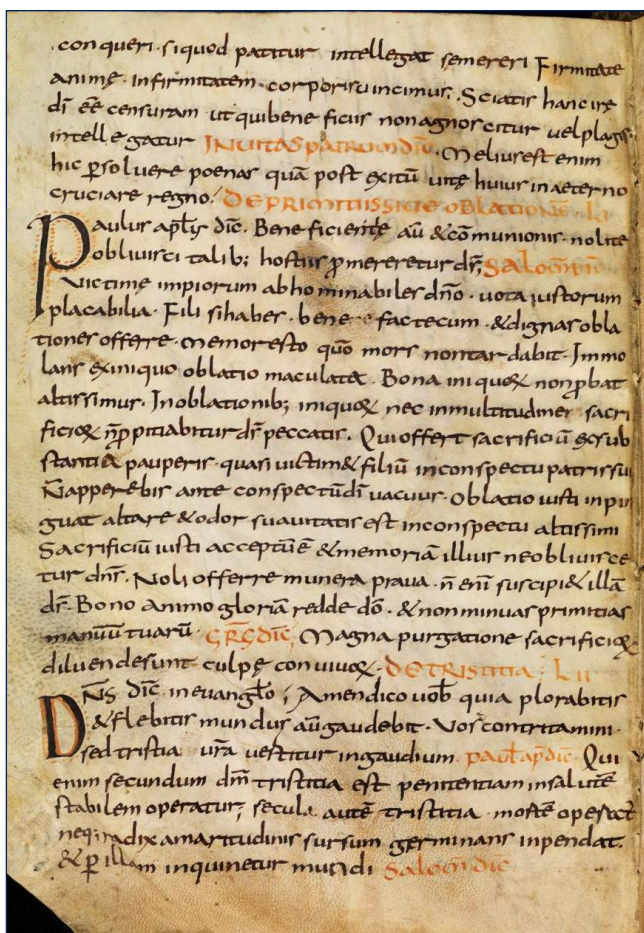 conqueri. siquod patitur intellegat semereri Firmitate
animę. infirmitatem. corporis uincimus. Sciatis hanc irę
dī eē censuram ut quibene ficiis non agnoscitur uel plagis
intellegatur IN UITAS PATRUM DIC̄. Melius est enim
hic ꝑsoluere poenas quā post exitū uitę huius in aeterno
cruciare regno. DE PRIMITIIS SIUE OBLATIONIB;. LI
Paulus apłs dic̄. Beneficientię aū & cōmunionis. nolite
obliuisci talib; hostiis ꝓmereretur dr̄; SALOMON DIC̄
Victimę impiorum abhominabiles dn̄o. uota iustorum
placabilia. Fili si habes. bene fac tecum. & dignas obla
tiones offerre. memor esto quō mors non tardabit. Immo
lans ex iniquo oblatio maculata. Bona iniquoꝝ non ꝓbat
altissimus. In oblationib; iniquoꝝ nec in multitudines sacri
ficioꝝ n̄ ꝓpitiabitur dr̄ peccatis. Qui offert sacrificiū ex sub
stantia pauperis. quasi uictim& filiū in conspectu patris sui
N̄ apparebis ante conspectū dī uacuus. Oblatio iusti inpin
guat altare & odor suauitatis est in conspectu altissimi
Sacrificiū iusti acceptū ē & memoriā illius ne obliuisce
tur dn̄s. Noli offerre munera praua. n̄ enī suscipi& illā
dr̄. Bono animo gloriā redde dō. & non minuas primitias
manūū tuarū. GRḠ DIC̄; Magna purgatione sacrificioꝝ
diluendesunt culpę conuiuoꝝ. DE TRISTITIA; LII
Dn̄s dic̄ in euanglo; Amen dico uob̄ quia plorabitis
& flebitis mundus aū gaudebit. Vos contritamini.
sed tristia ur̄a uertitur in gaudium. PAUL̄ AP̄ DIC̄. Qui
enim secundum dm̄ tristitia est penitentiam in salutē
stabilem operatur; seculi autē tristitia. mortē operat̄
neq; radix amaritudinis sursum germinans inpendat.
& ꝑ illam inquinetur multi di SALOMON DIC̄